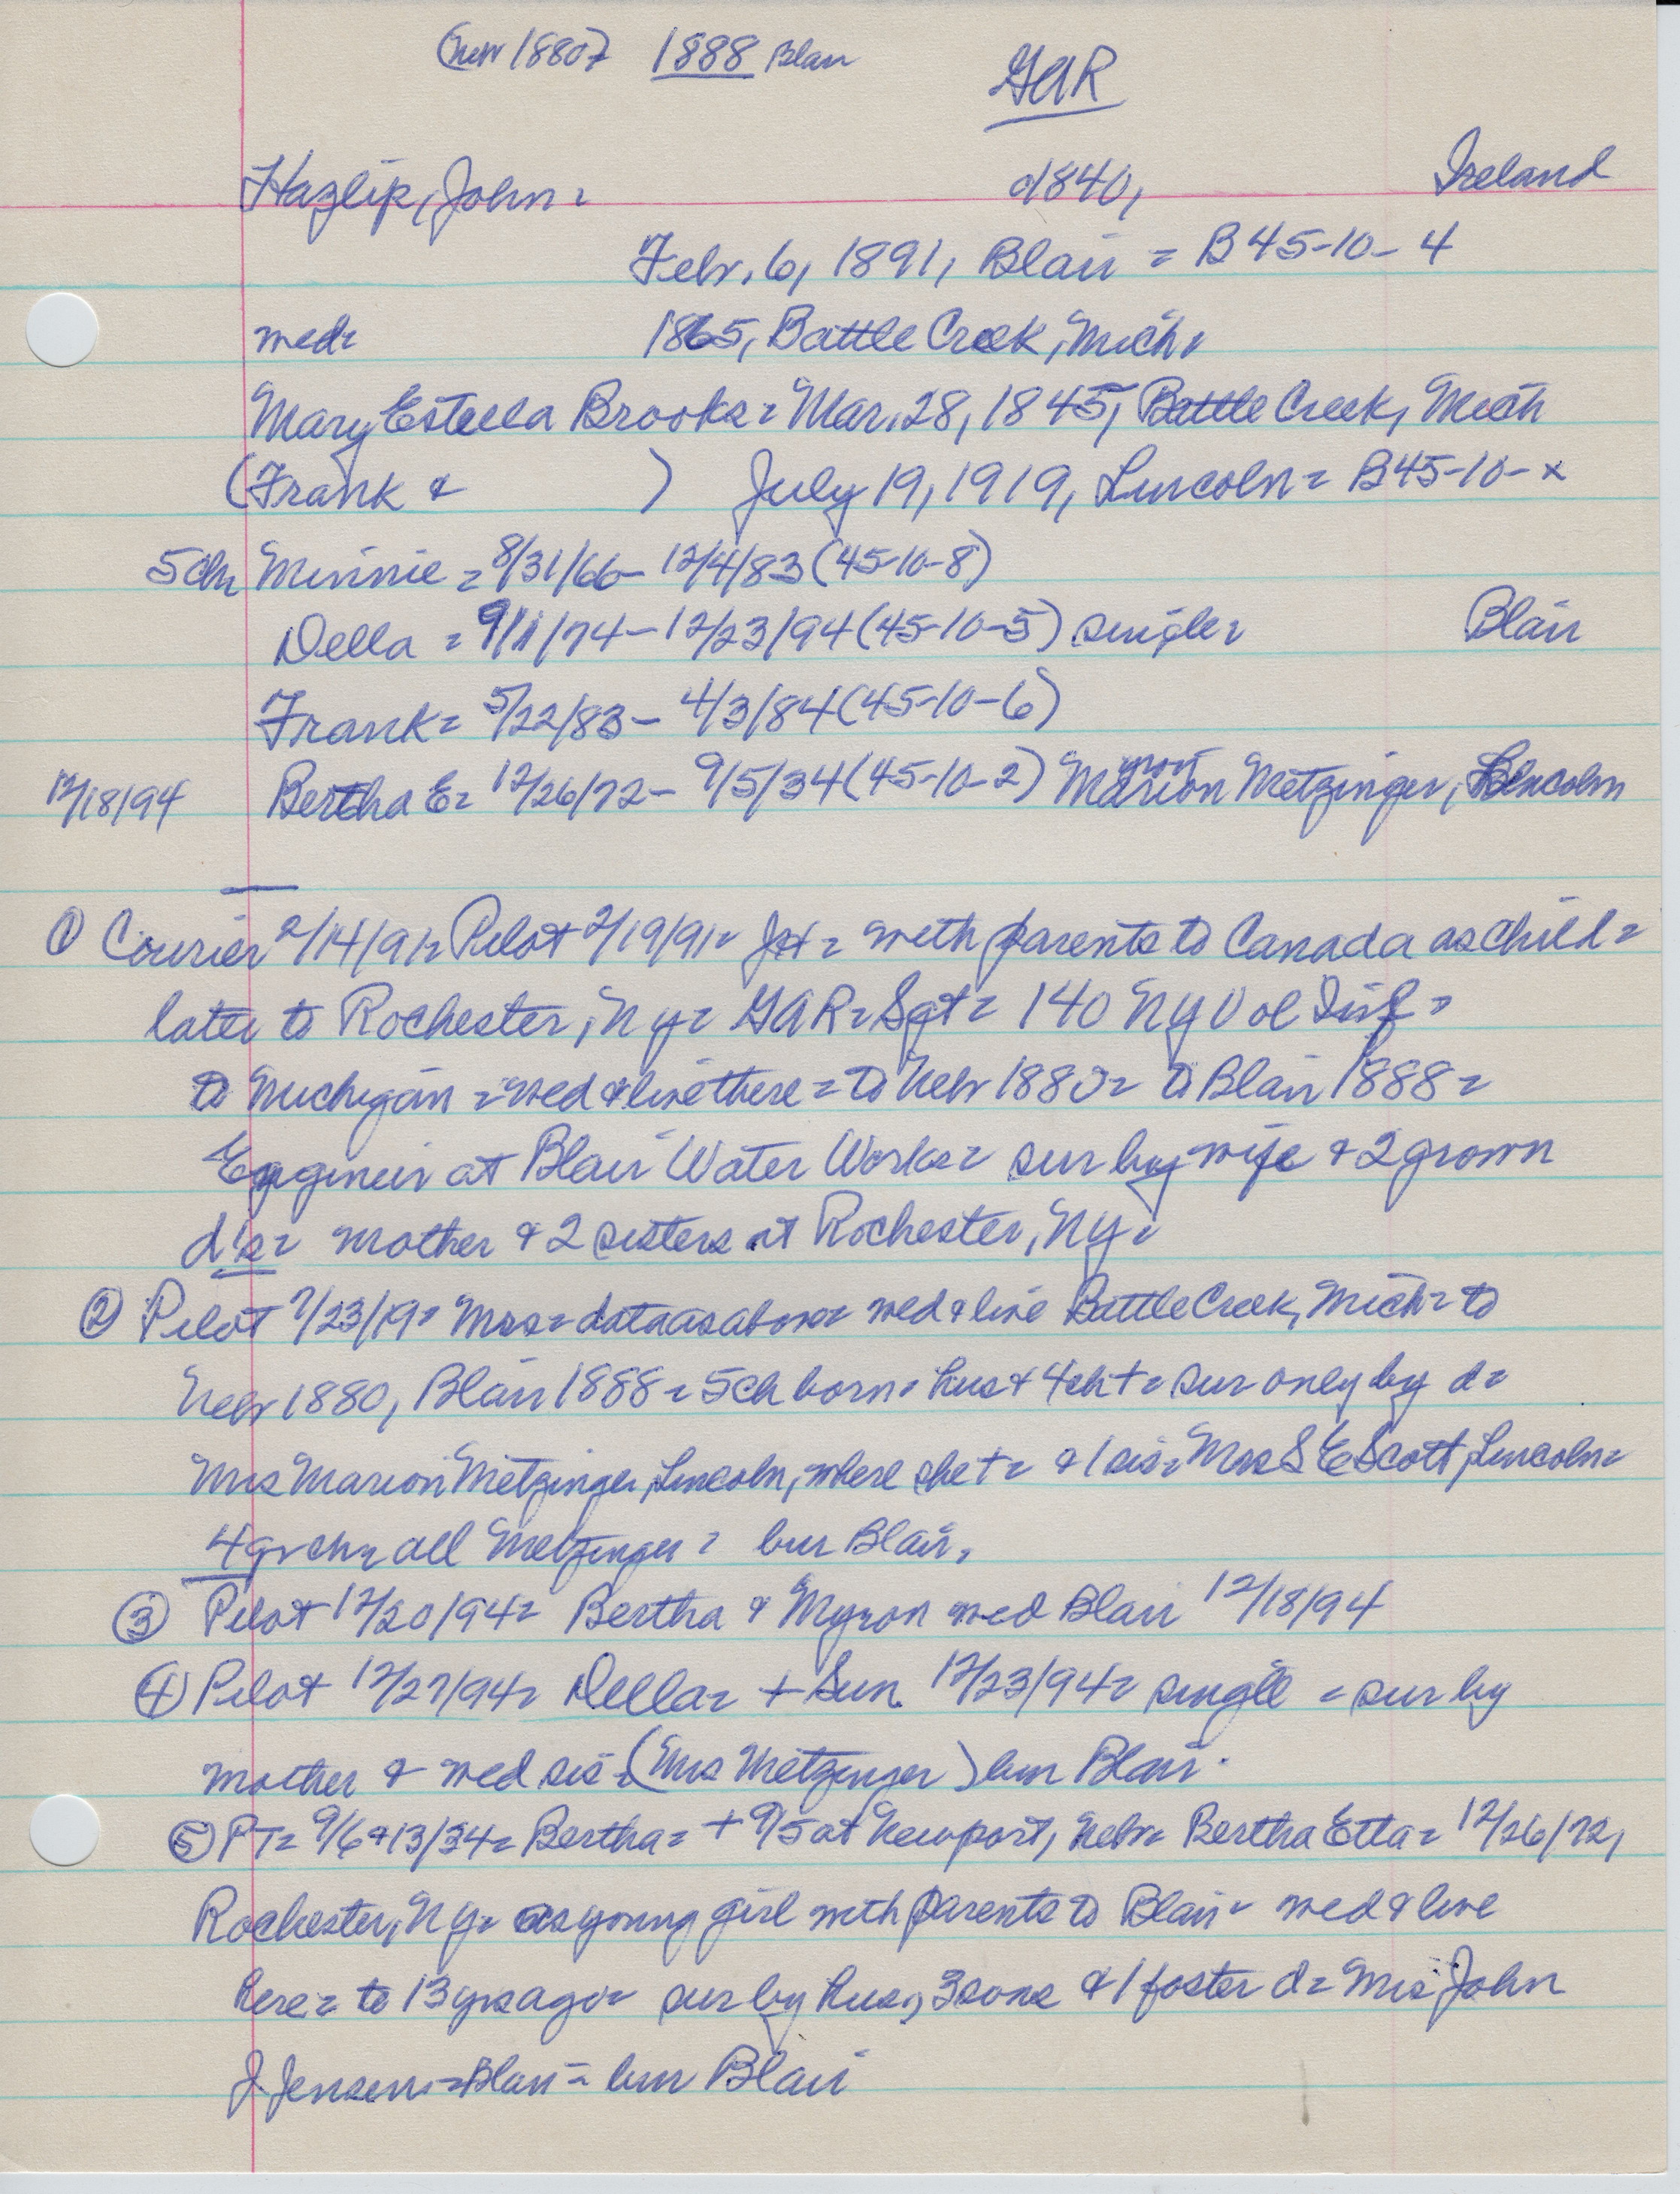 (Nebr 1880) 1888 Blair
GAR
Hazlip, John = 1840, Ireland
Febr. 6, 1891, Blair = B 45-10-4
med= 1865, Battle Creek, Mich=
Mary Estella Brooks = Mar. 28, 1845, Battle Creek, Mich
(Frank & ) July 19, 1919, Lincoln = B45-10-x
5 ch= Minnie = 8/31/66 - 12/4/83 (45-10-8)
Della = 9/11/74 - 12/23/94 (45-10-5) single= Blair
Frank = 5/22/83 - 4/3/84 (45-10-6)
12/18/94 Bertha E = 12/26/72 - 9/5/34 (45-10-2) Marion Metzinger, Lincoln
① Courier 2/14/91= Pilot 2/19/91= = with parents to Canada as child =
later to Rochester, NY= GAR= Sgt= 140 NY Vol Inf =
to Michigan = med & live there = to Nebr 1880= to Blair 1888=
Engineer at Blair Water Works= sur by wife & 2 grown
d's= mother & 2 sisters at Rochester, NY=
② Pilot 7/23/19= Mrs= data as above= med & live Battle Creek, Mich= to
Nebr 1880, Blair 1888 = 5 ch born= hus & 4 ch += sur only by d=
Mrs Marion Metzinger, Lincoln, where she += & 1 sis= Mrs S E Scott, Lincoln=
4 gr ch= all Metzinger = bur Blair.
③ Pilot 12/20/94= Bertha & Myron med Blair 12/18/94
④ Pilot 12/27/94= Della= + Sun 12/23/94= single = sur by
mother & med sis (Mrs Metzinger) bur Blair.
⑤ PT= 9/6 & 13/34= Bertha= + 9/5 at Newport, Nebr= Bertha Etta= 12/26/72,
Rochester, NY= as young girl with parents to Blair= med & live
here= to 13 yrs ago= sur by hus, 3 sons & 1 foster d= Mrs John
J. Jensen = Blair = bur Blair